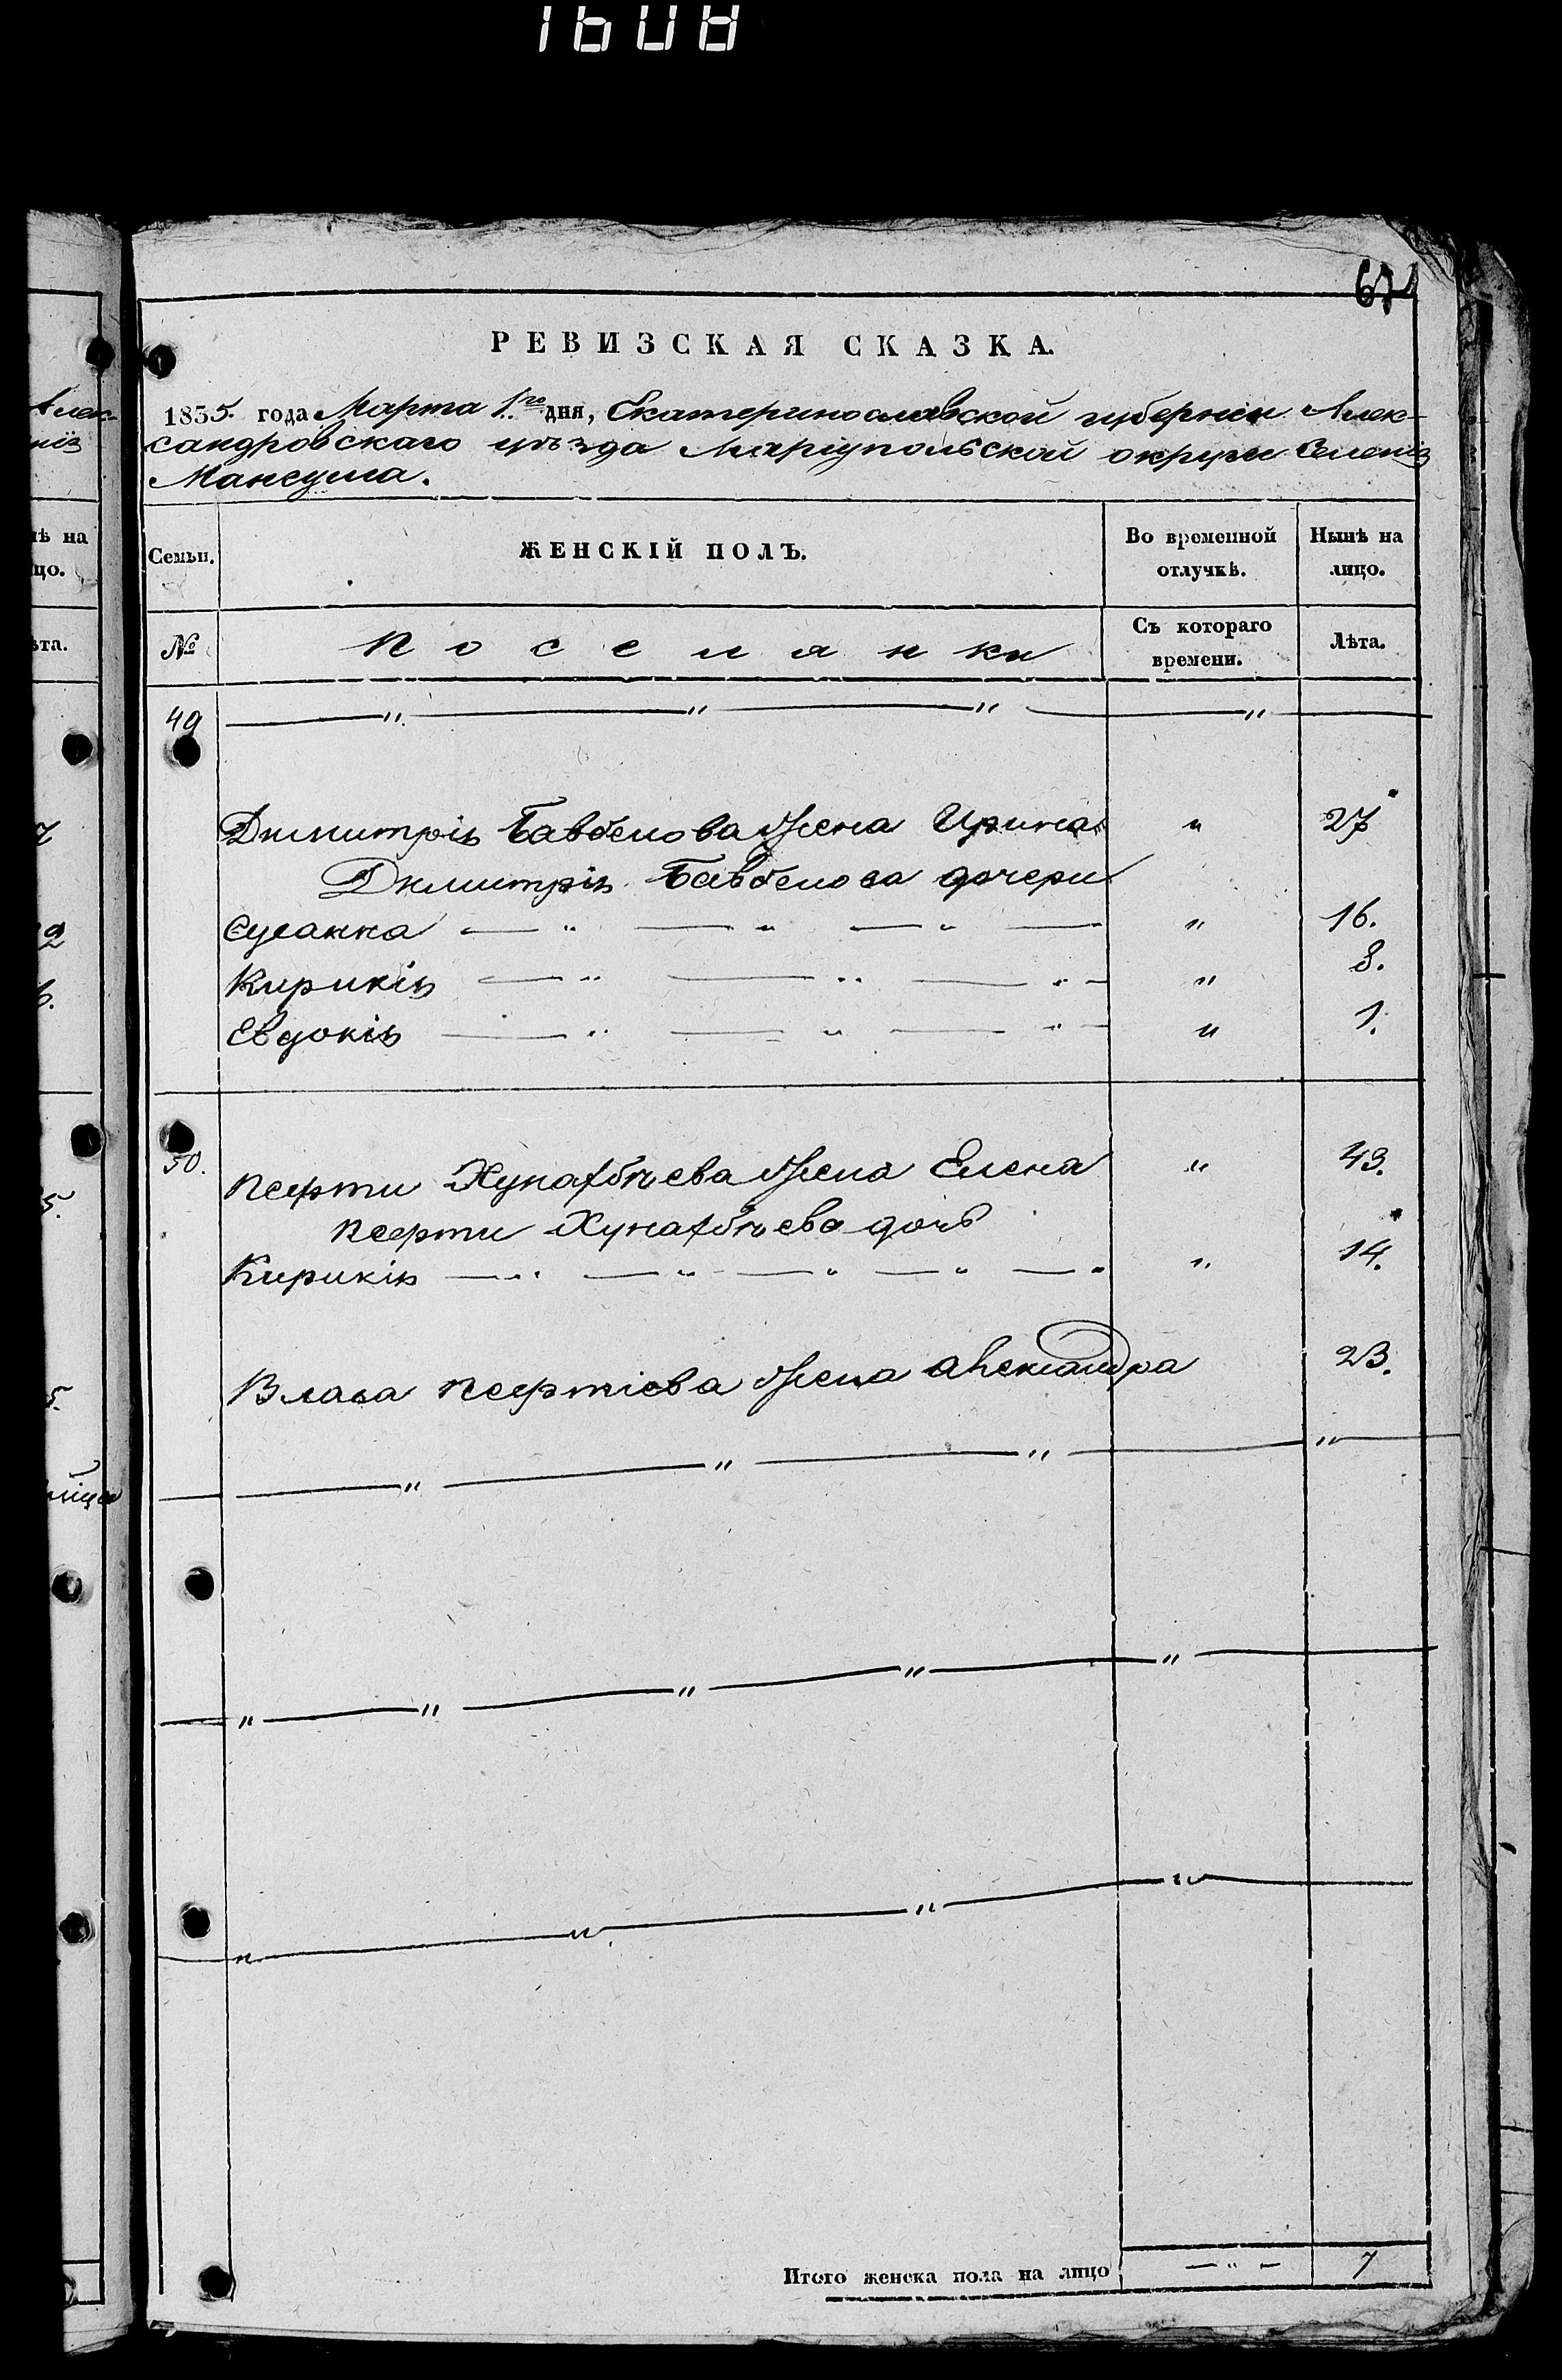 1608
67
РЕВИЗСКАЯ СКАЗКА.
1835. года Марта 1го дня, Екатеринославской губернiи Алек-
сандровскаго уѣзда Марiупольской округи Селенiя
Мангуша.
Семьи. ЖЕНСКIЙ ПОЛЪ. Во временной отлучкѣ. Нынѣ на лицо.
№ Поселянки Съ котораго времени. Лѣта.
49 — " — " — " — " —
Дмитрiя жена Ирина " 27
Дмитрiя дочери
Сусанна — " — " — " — " 16.
Кирикiя — " — " — " — " 8.
Евдокiя — " — " — " — " 1.
50.
Пефти жена Елена " 43.
Пефти дочь
Кирикiя — " — " — " — " — " 14.
Власа Пефтiева жена Александра 23.
— " — " — " — " —
— " — " — " — " — " —
— " — " — " — " —
Итого женска пола на лицо — " — 7